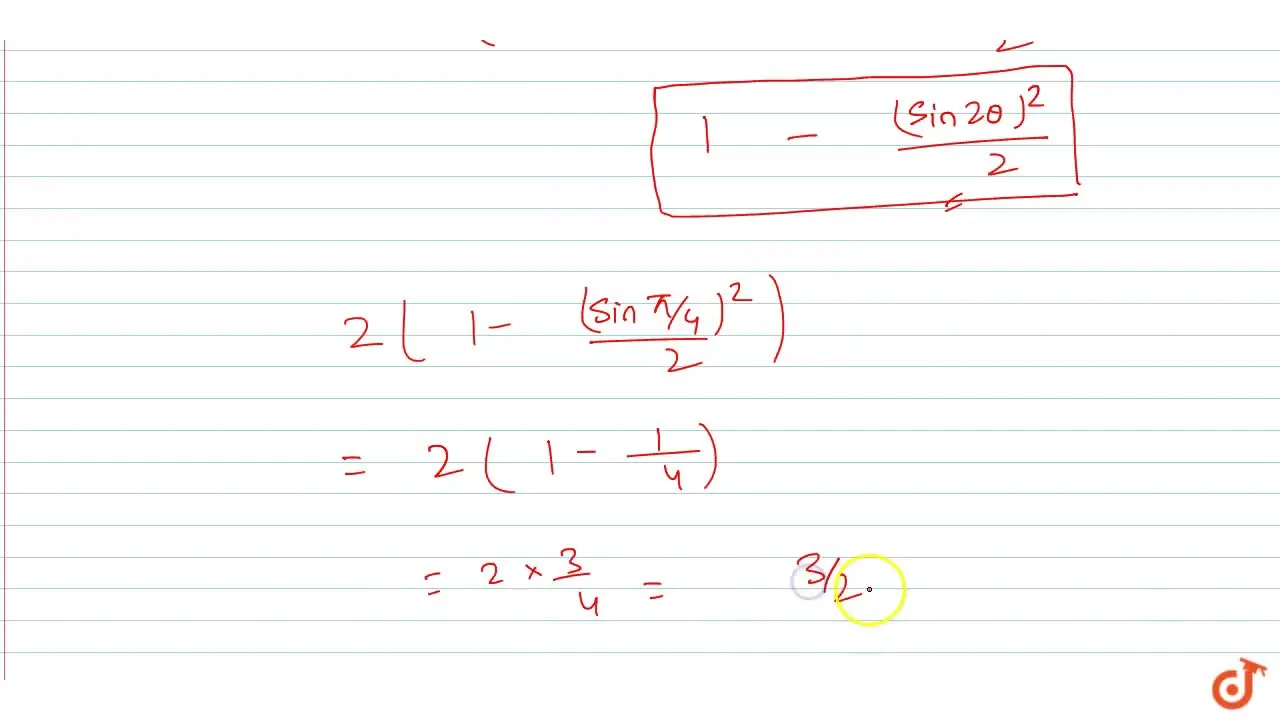 2
1 - (sin 2θ)² / 2
2 ( 1 - (sin π/4)² / 2 )
= 2 ( 1 - 1/4 )
= 2 × 3/4 = 3/2